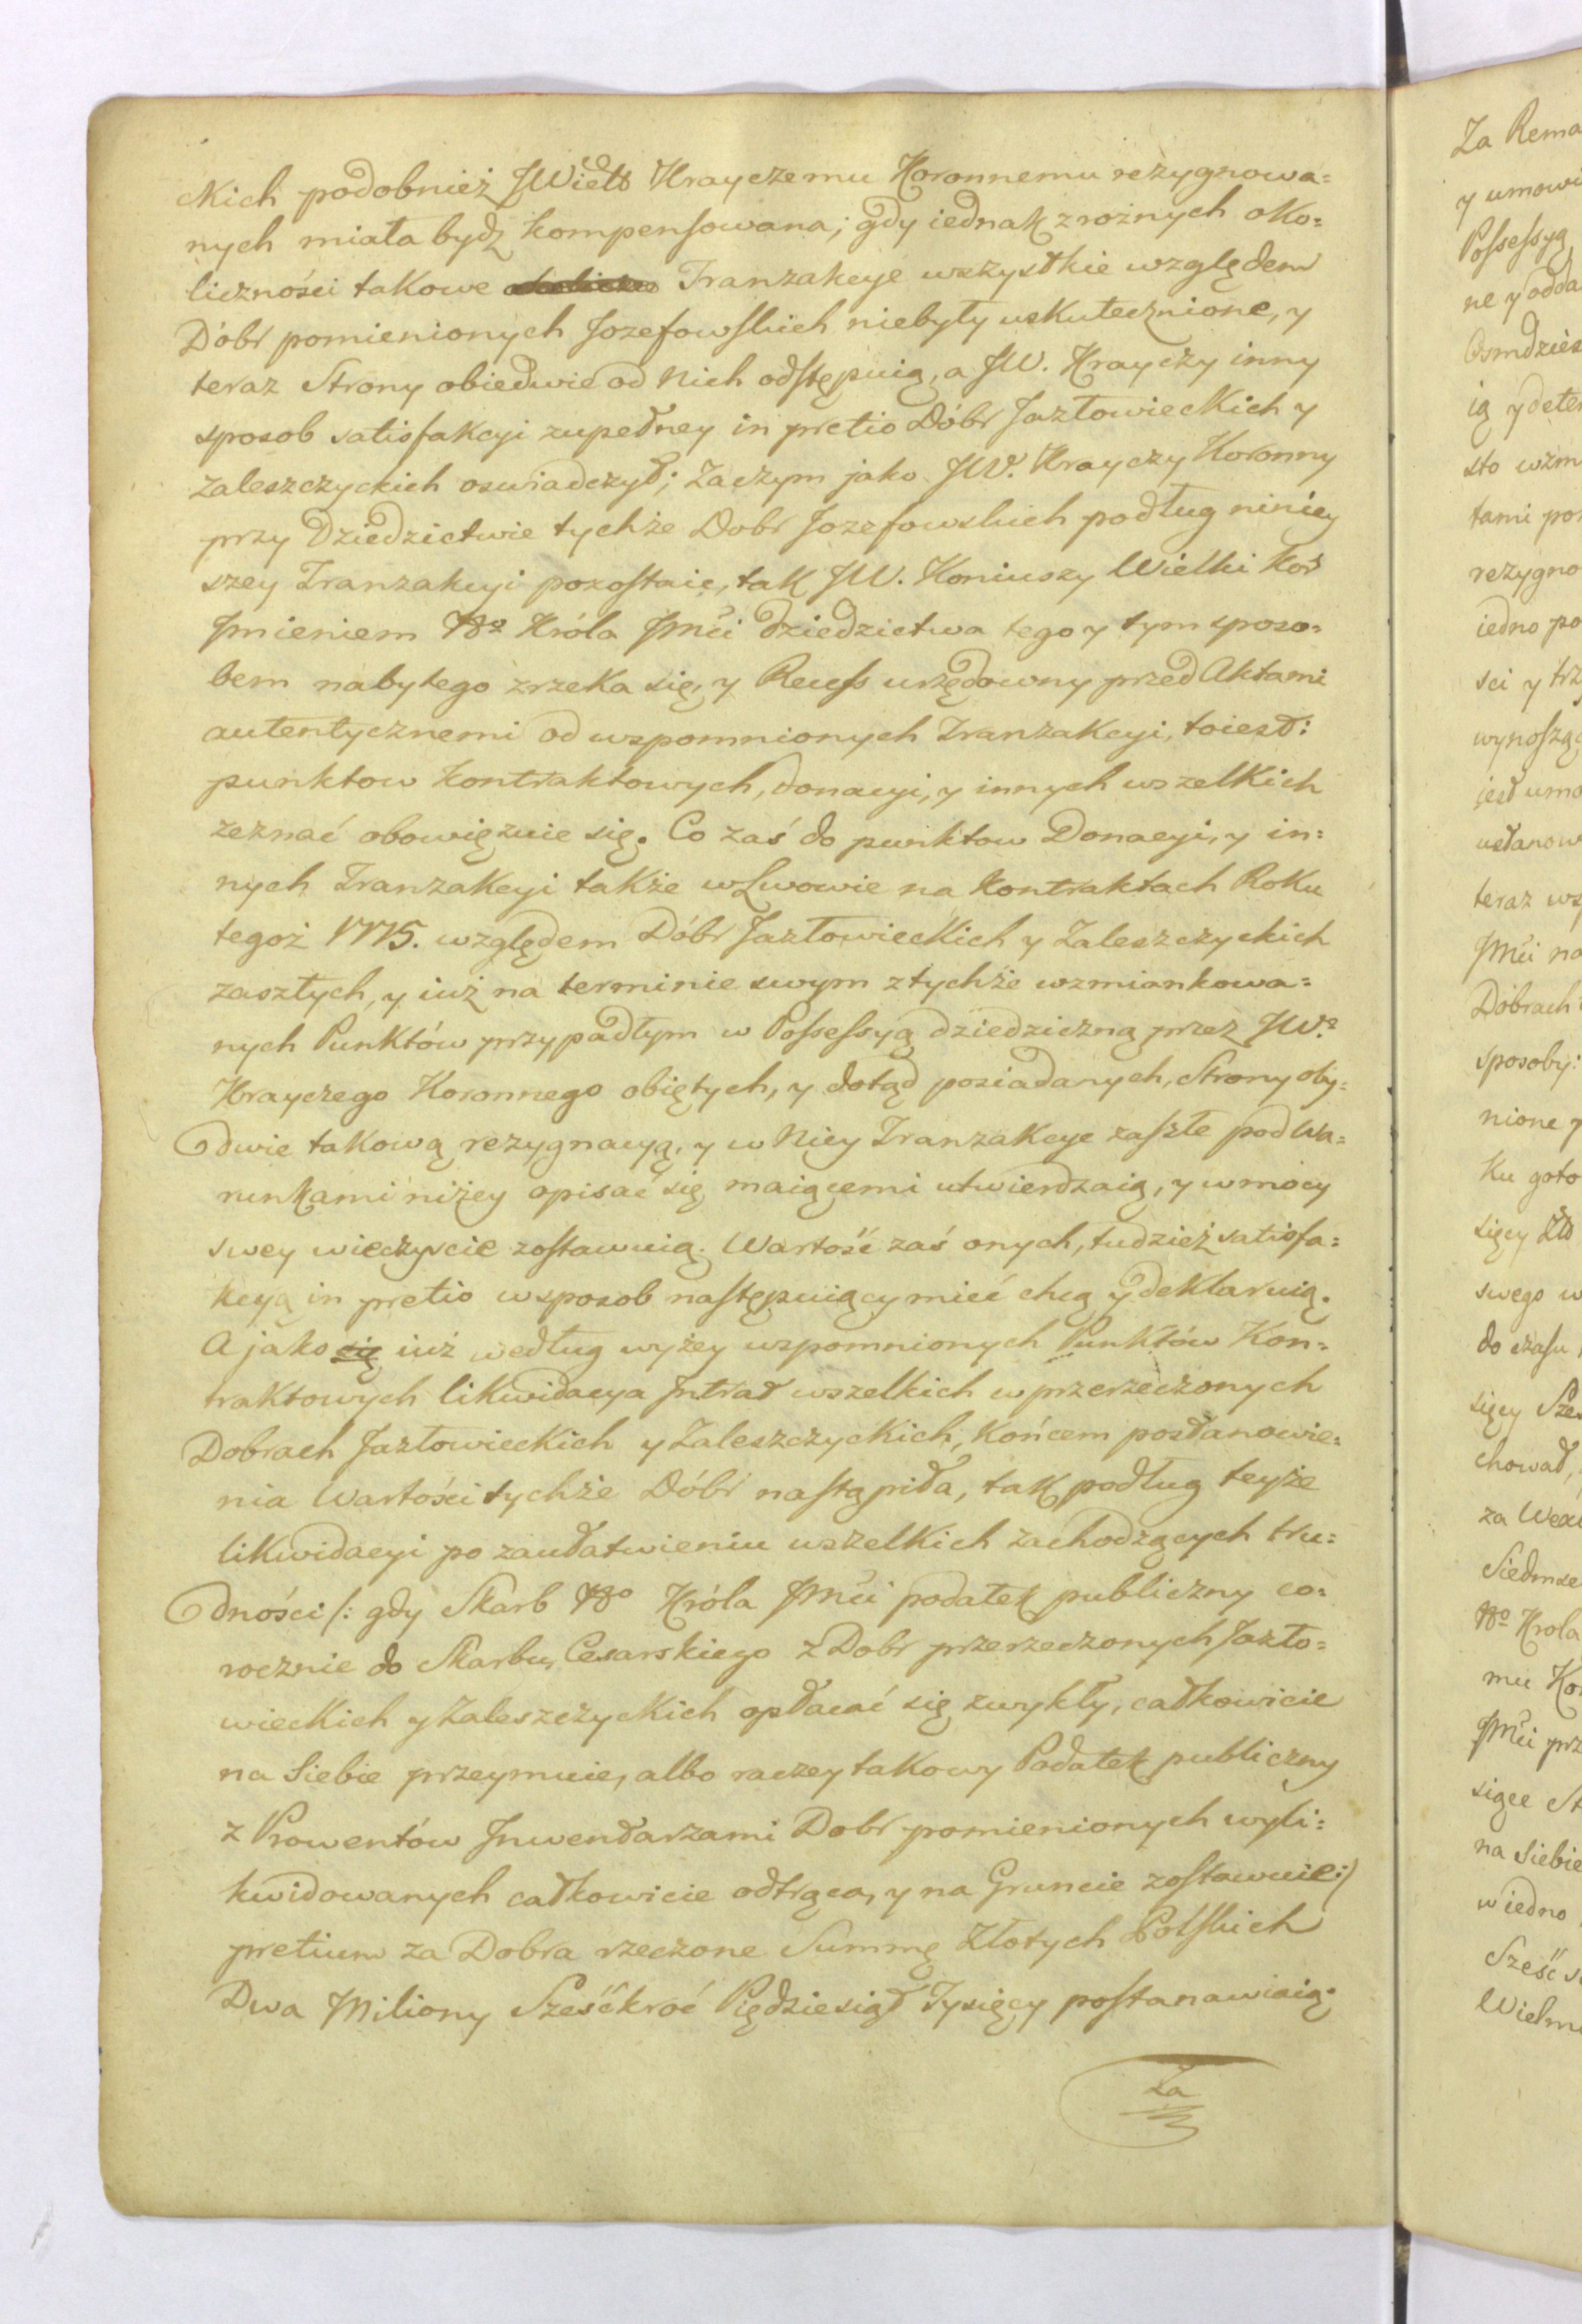 ckich podobnież JWielb Krayczemu Koronnemu rezygnowa=
nych miała bydź kompensowana; gdy iednak z rożnych oko=
liczności takowe Tranzakcye wszystkie względem
Dóbr pomienionych Jozefowskich niebyły uskutecznione, y
teraz Strony obiedwie od nich odstępuią, a JW. Krayczy inny
sposob satisfakcyi zupełney in pretio Dóbr Jazłowieckich y
Zaleszczyckich oswiadczył; Zaczym jako JW. Krayczy Koronny
przy Dziedzictwie tychże Dobr Jozefowskich podług niniey
szey Tranzakcyi pozostaie, tak JW. Koniuszy Wielki Kor
Jmieniem Nº Króla Jmći dziedzictwa tego y tym sposo=
bem nabytego zrzeka się, y Recess urzędowny przed Aktami
autentycznemi od wspomnionych Tranzakcyi, toiest:
punktow kontraktowych, donacyi, y innych wszelkich
zeznać obowięzuie się. Co zaś do punktow Donacyi, y in=
nych Tranzakcyi także w Lwowie na Kontraktach Roku
tegoż 1775. względem Dóbr Jazłowieckich y Zaleszczyckich
zaszłych, y iuż na terminie swym z tychże wzmiankowa=
nych Punktów przypadłym w Possessyą dziedziczną przez JWº
Krayczego Koronnego obiętych, y dotąd posiadanych, Strony oby=
dwie takową rezygnacyą, y w niey Tranzakcye zaszłe pod Wa=
runkami niżey opisać się maiącemi utwierdzaią, y w mocy
swey wieczyście zostawuią. Wartość zaś onych, tudzież satisfa=
kcyą in pretio w sposob następuiący mieć chcą y deklaruią.
A jako się iuż według wyżey wspomnionych Punktów Kon=
traktowych likwidacya Jntrat wszelkich w przerzeczonych
Dobrach Jazłowieckich y Zaleszczyckich, końcem postanowie=
nia Wartości tychże Dóbr nastąpiła, tak podług teyże
likwidacyi po zaułatwieniu wszelkich zachodzących tru=
dności /: gdy Skarb Nº Króla Jmći podatek publiczny co=
rocznie do Skarbu Cesarskiego z Dobr przerzeczonych Jazło=
wieckich y Zaleszczyckich opłacać się zwykły, całkowicie
na Siebie przeymuie, albo raczey takowy Podatek publiczny
z Prowentów Jnwentarzami Dobr pomienionych wyli=
kwidowanych całkowicie odtrąca, y na Gruncie zostawuie :/
pretium za Dobra rzeczone Summę Złotych Polskich
Dwa Miliony Sześćkroć Pięćdziesiąt Tysięcy postanawiaią.
Za
Za Rema
y umowi
Possessyą
ne y odda
Osmdzies
ią y dete
sto wzm
tami po
rezygno
iedno po
sci y trz
wynoszą
jest umo
ustanow
teraz wsp
Jmći na
Dóbrach
sposoby:
nione
Ku goto
sięcy Zło
swego w
do czasu
sięcy Sze
chował,
za Wex
Siedmse
Nº Krola
mu Ko
Jmći prz
siące St
na Siebie
w iedno
Sześć s
Wielm